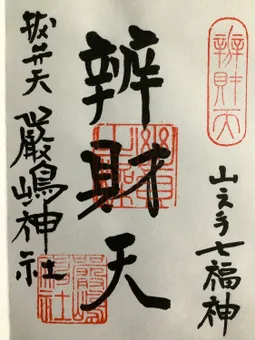 辨財天
山之手七福神
辨財天
拔弁天
嚴嶋神社
嚴嶋神社